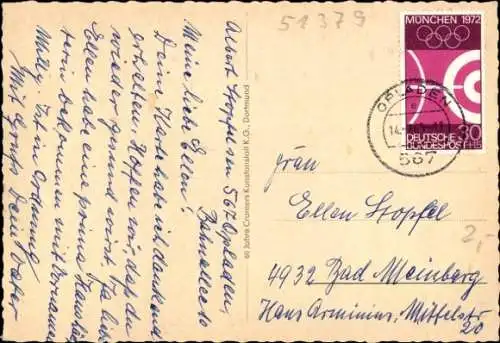 51379
MÜNCHEN 1972
OPLADEN
e
567
DEUTSCHE
BUNDESPOST
30
+15
Albert Stopfel 567 Opladen,
Bahnallee 10
Meine liebe Ellen!
Deine Karte habe ich dankend
erhalten, Hoffen wir, daß du
wieder gesund wirst. Ja liebe
Ellen habe eine prima
bekommen mit Vornamen
Milly. Ist in Ordnung
Mit Gruß Dein Vater
60 Jahre Cramers Kunstanstalt K.G., Dortmund
Frau
Ellen Stopfel
2,-
4932 Bad Meinberg
Hans Arminius, Mittelstr
20